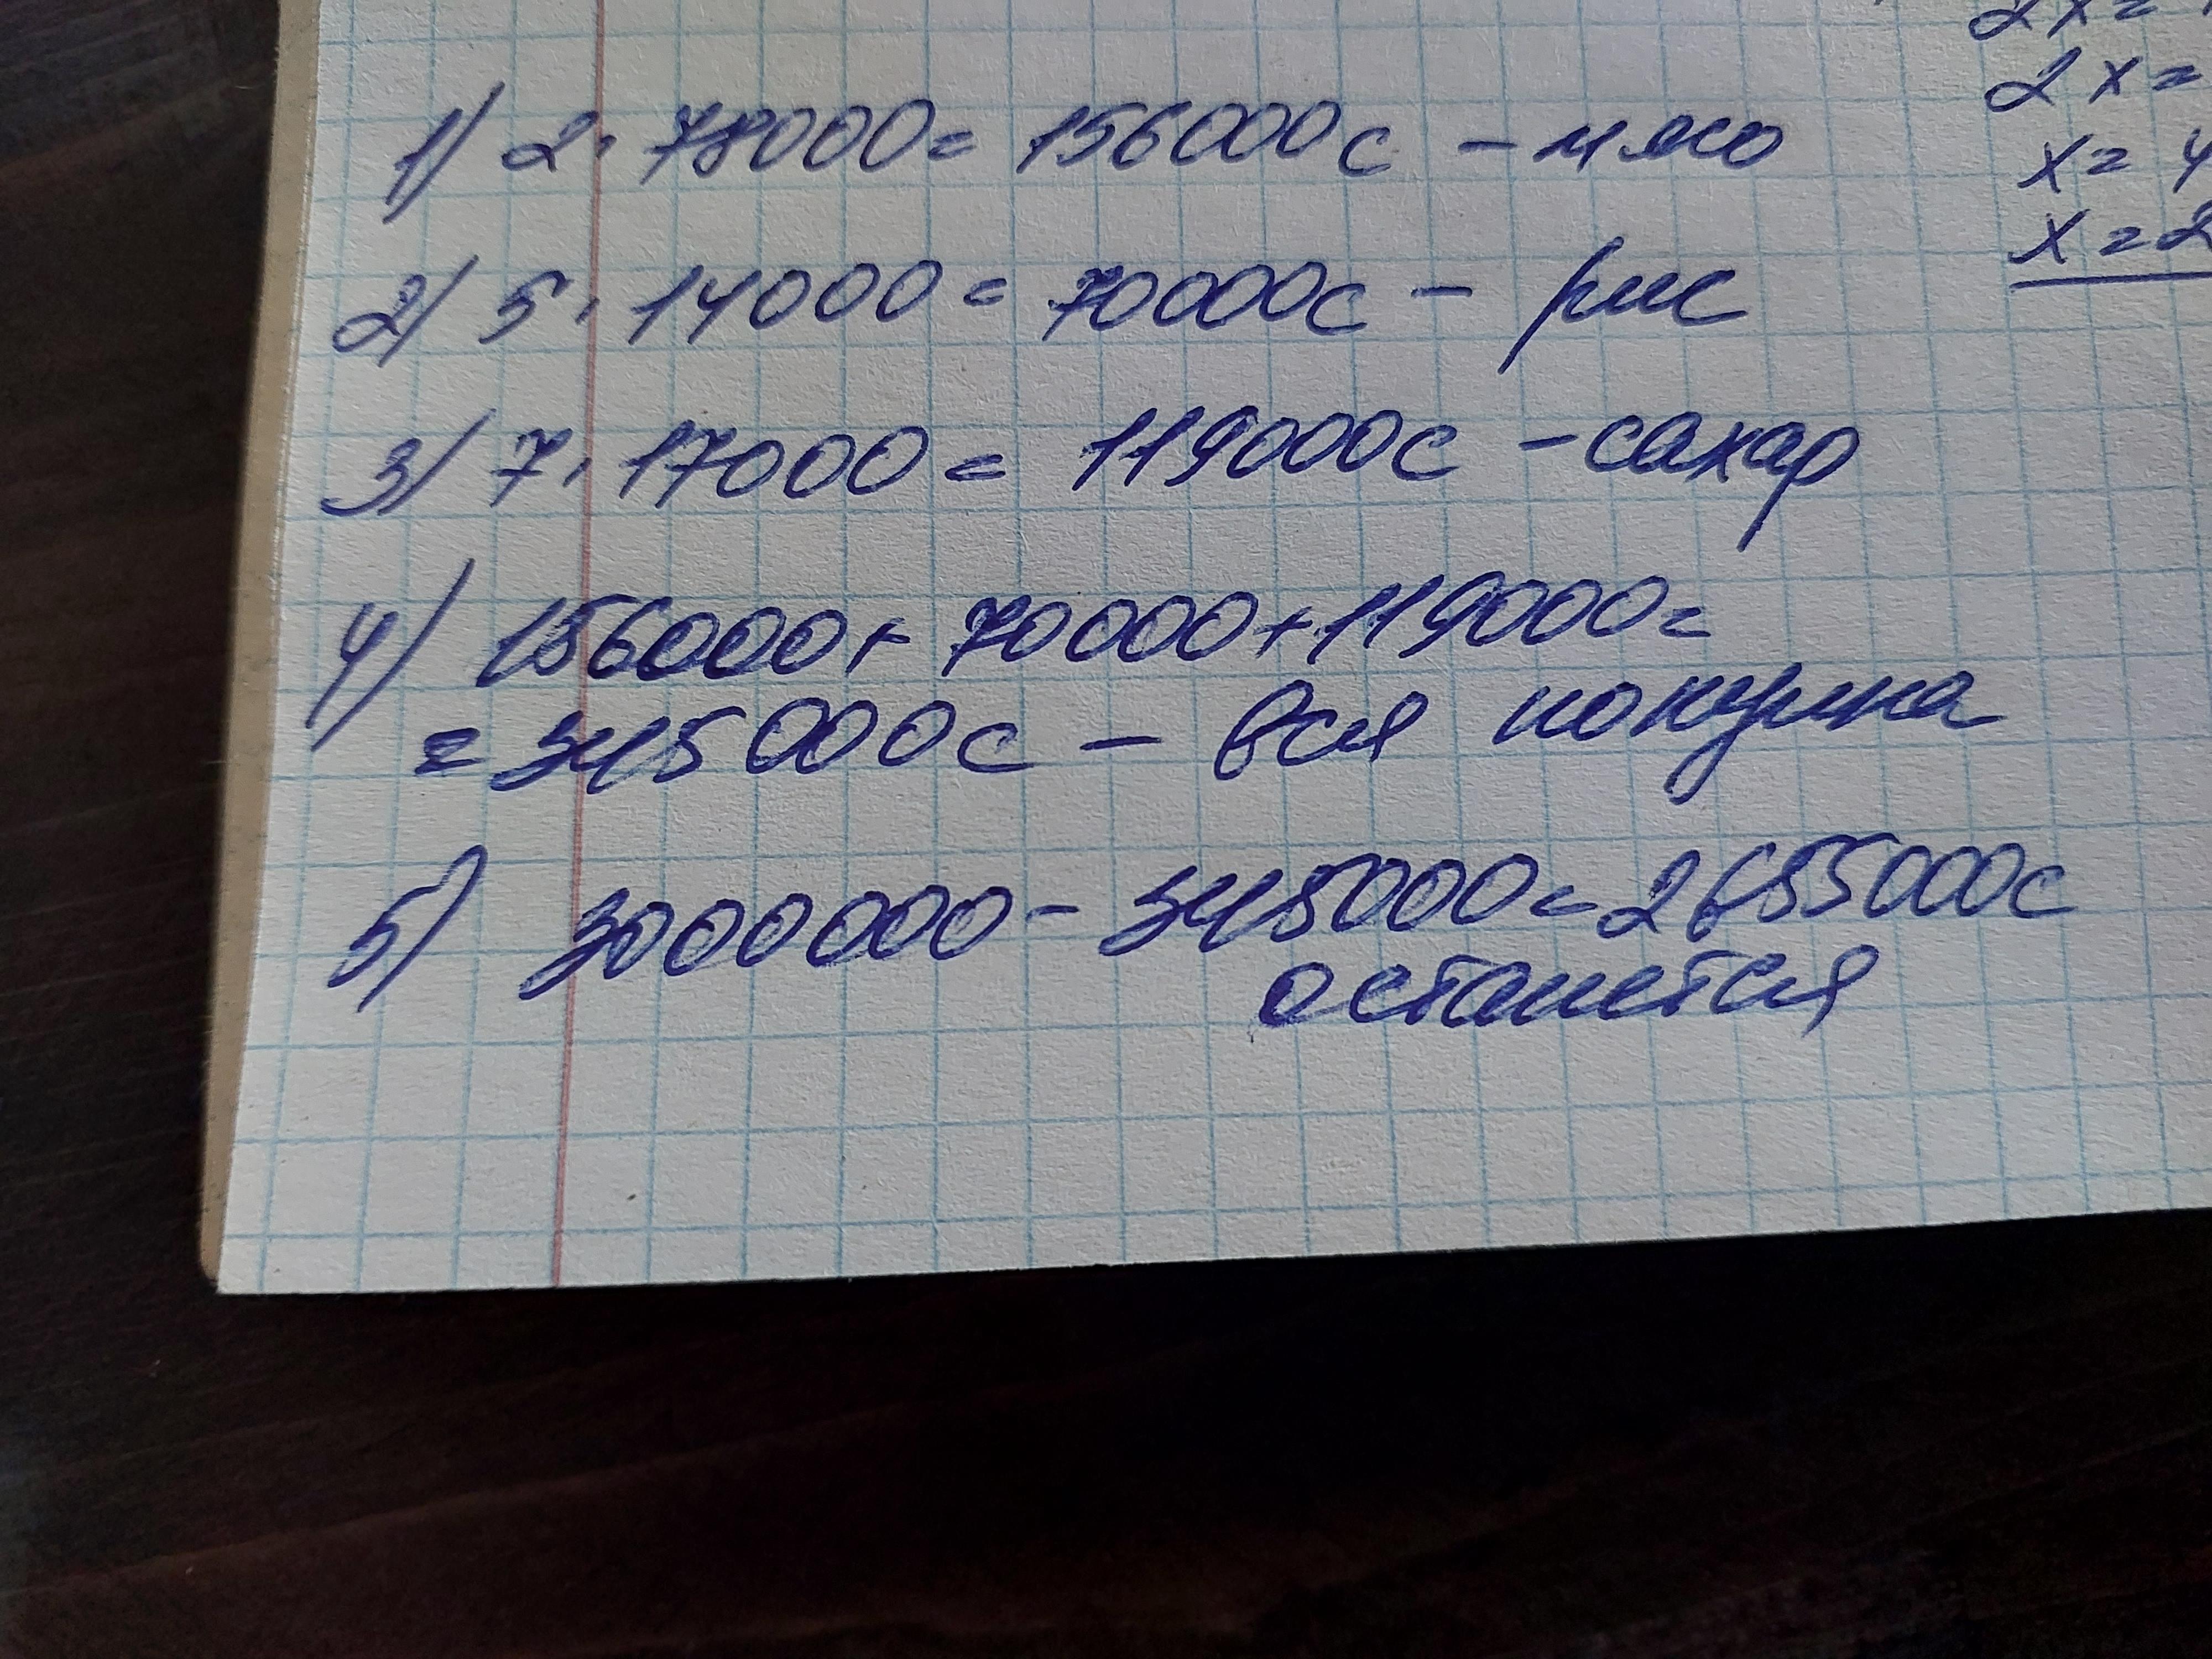 1) 2 · 78000 = 156000с - мясо
2) 5 · 14000 = 70000с - рис
3) 7 · 17000 = 119000с - сахар
4) 156000 + 70000 + 119000 =
= 345000с - вся покупка
5) 3000000 - 345000 = 2655000с
останется
2x =
2x =
x = 4
x = 2